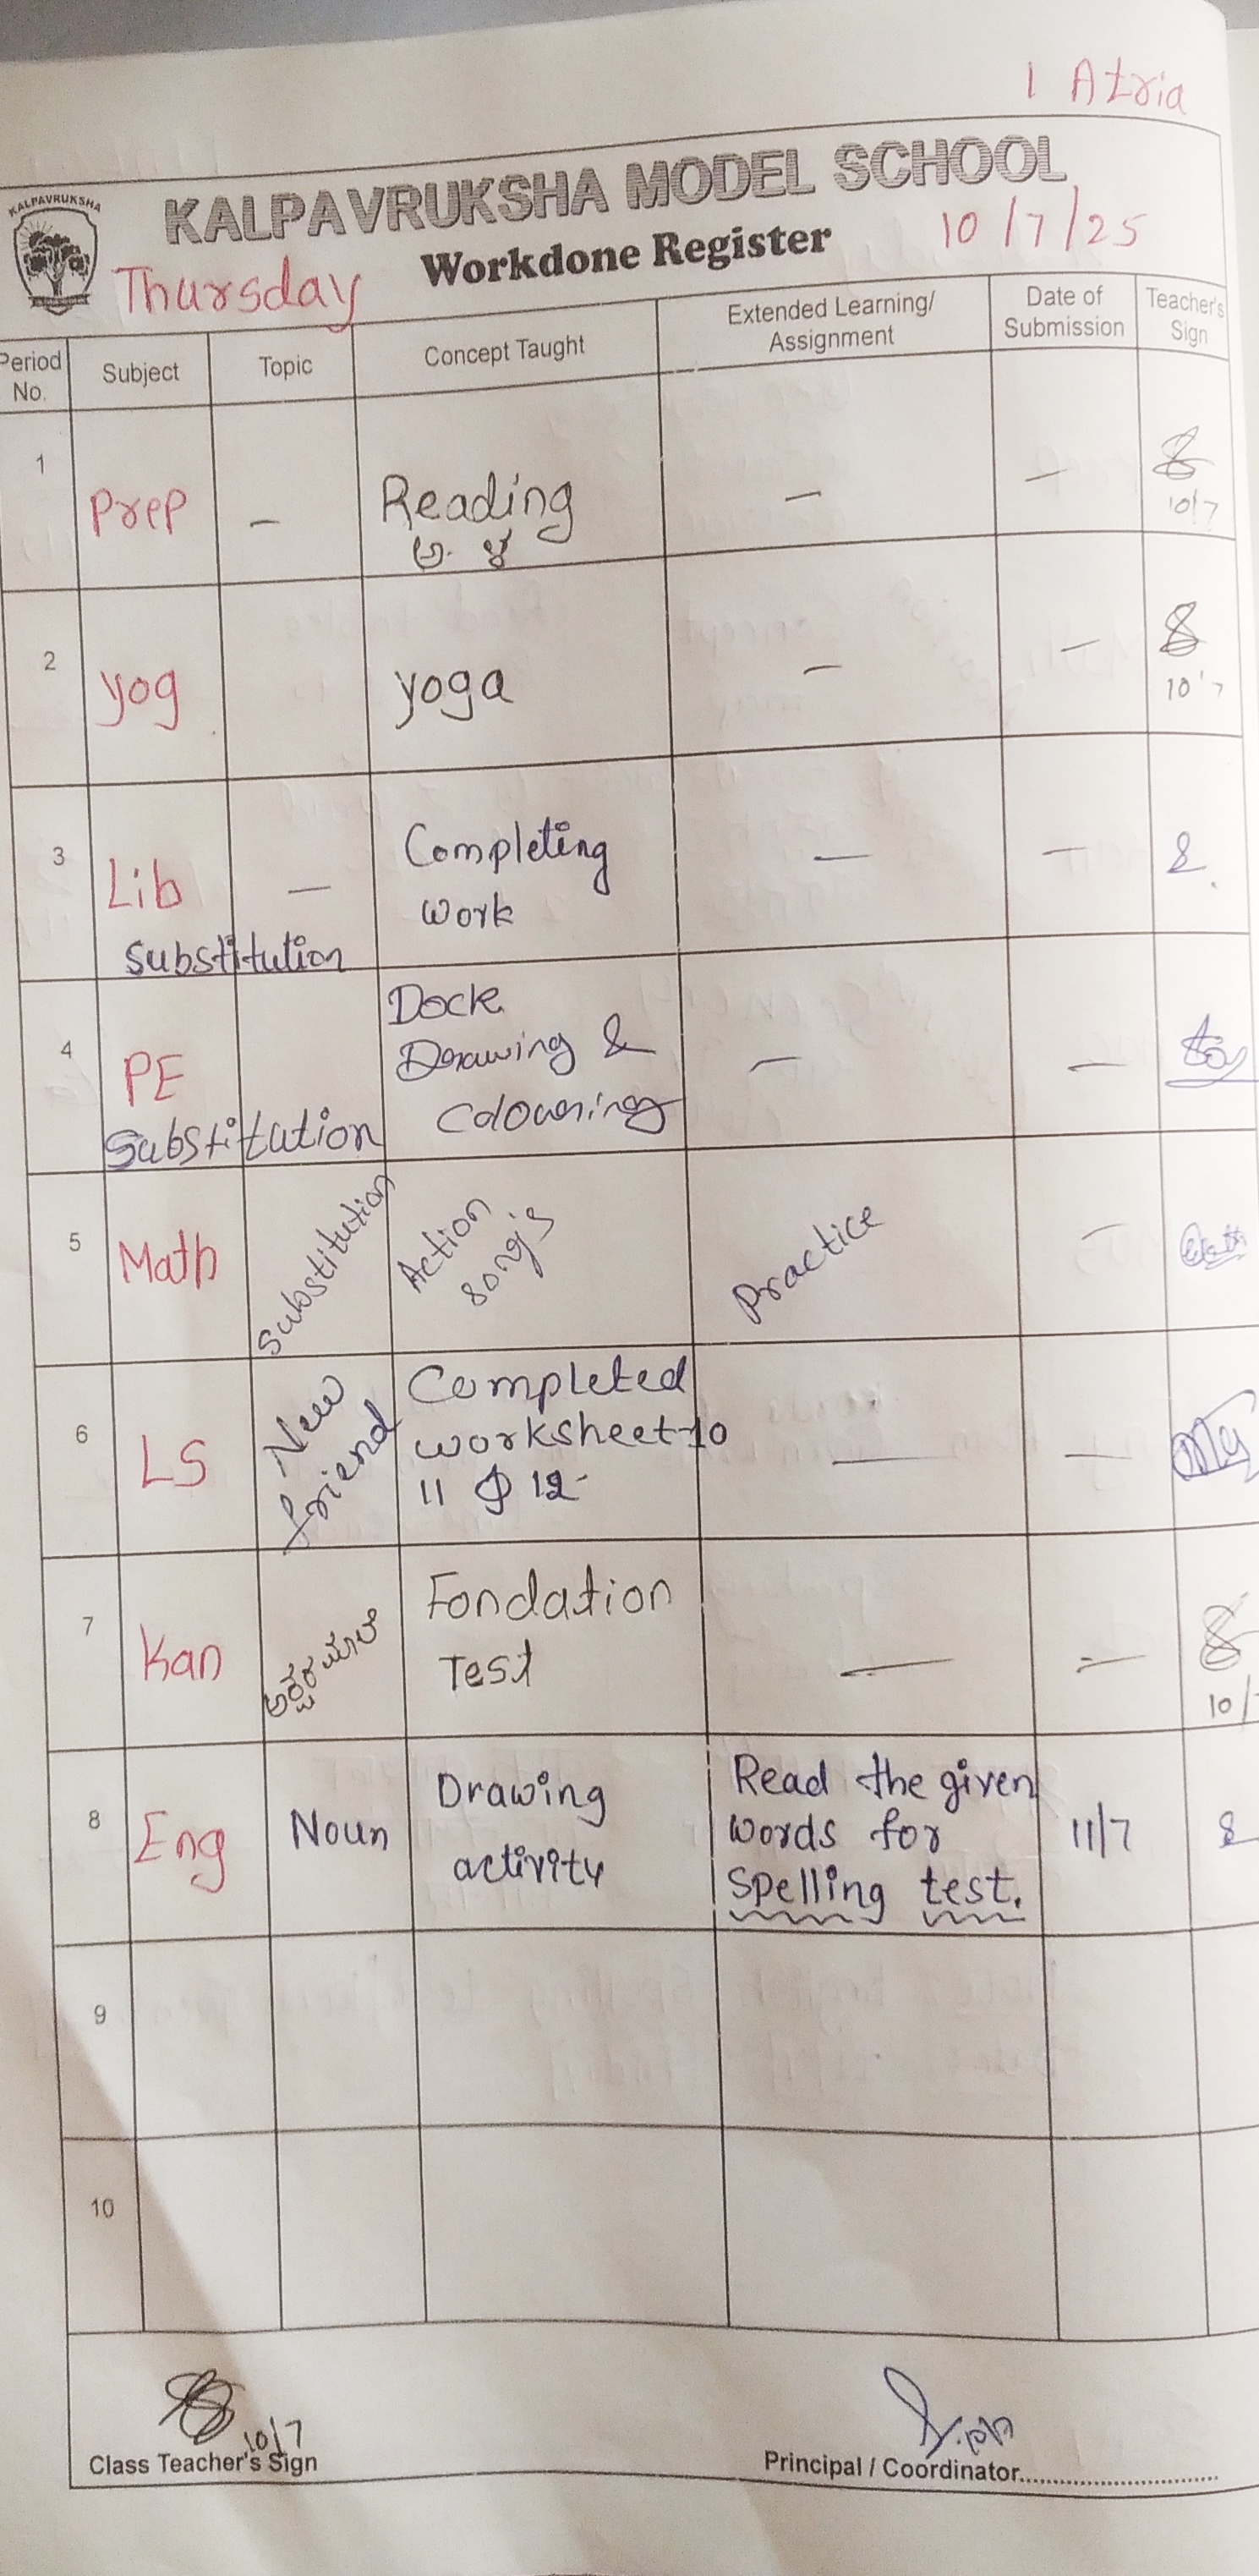 1 Atria
KALPAVRUKSHA
KALPAVRUKSHA MODEL SCHOOL
Thursday Workdone Register 10/7/25
Period No. Subject Topic Concept Taught Extended Learning/ Assignment Date of Submission Teacher's Sign
1 Prep - Reading - -
ಅ. ಳ 10/7
2 yog yoga - -
10/7
3 Lib - Completing - -
work
Substitution
4 PE Dock
Drawing & - -
Substitution Colouring
5 Math Substitution Action Practice -
song's
6 LS New Completed
friend worksheet-10 - -
11 & 12-
7 Kan ಅಕ್ಷರಮಾಲೆ Fondation
Test - -
10/
8 Eng Noun Drawing Read the given 11/7
activity words for
spelling test.
9
10
10/7
Class Teacher's Sign Principal / Coordinator